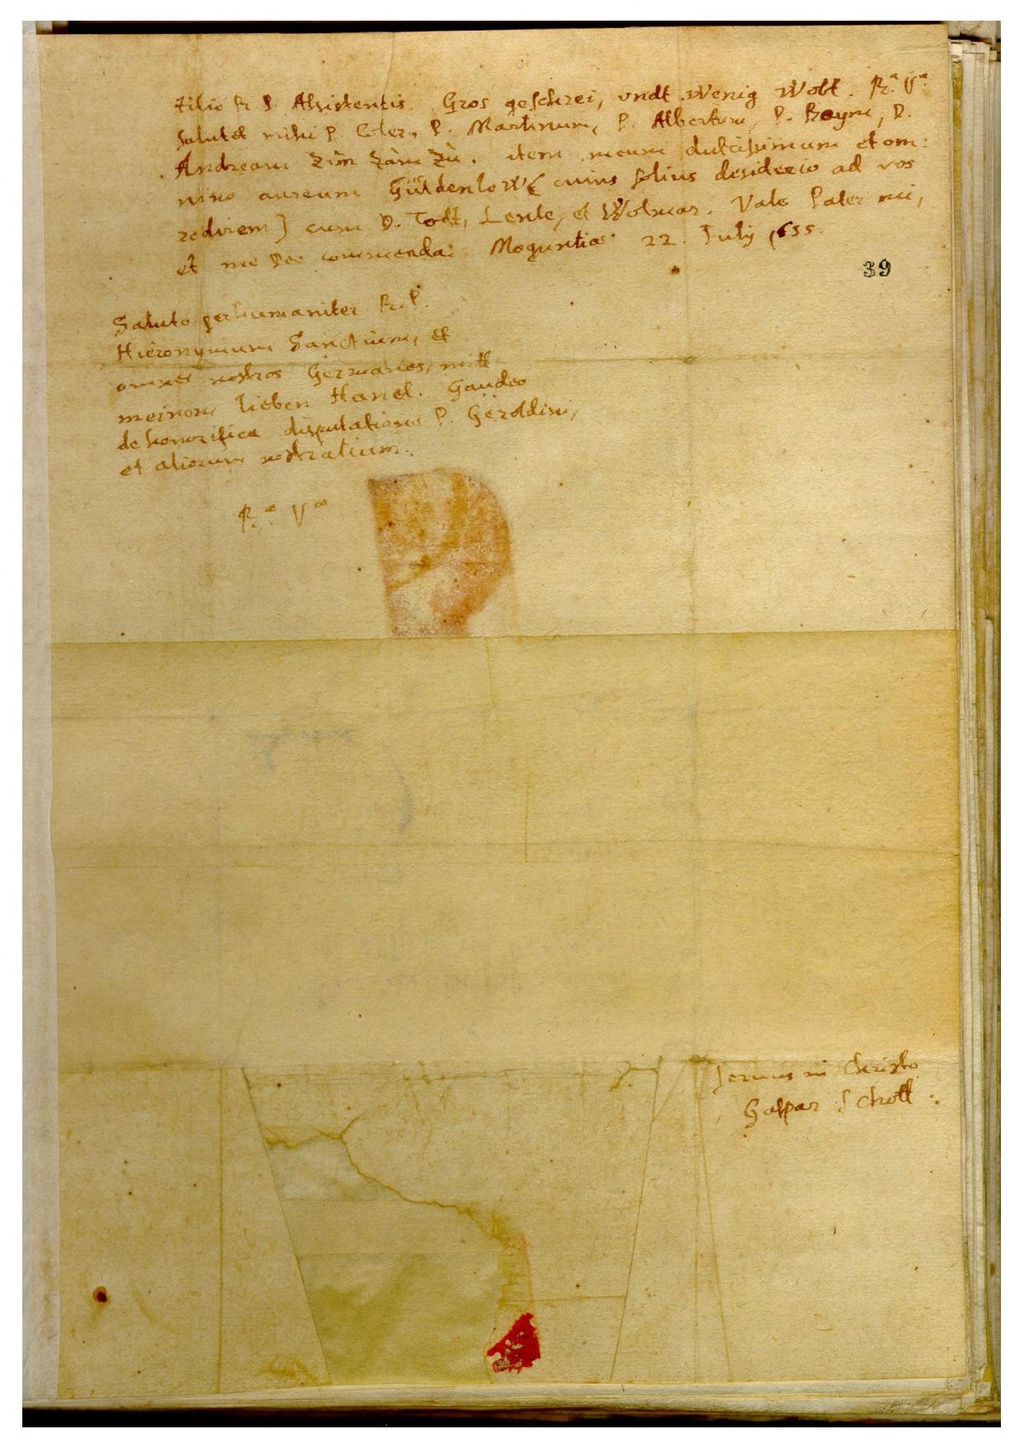 R P Assistentis. Gros geschrei, undt wenig Woll. R.ª V.ª
salutet mihi P. P. Martinum, P. Albertum, P. Boym, D.
Andream item meum dulcissimum et om:
nino aureum Güldenlow cuius solius desiderio ad vos
redirem] cum D. Todt, Lente, et Wolmar. Vale Pater mi,
et me Deo commenda: Moguntiæ 22. July 1655.
39
Saluto perhumaniter R.P.
Hieronymum Sanctium, et
omnes nostros Germanos, mitt
meinem lieben Hanel. Gaudeo
de honorifica disputatione P. Geroldini,
et aliorum nostratium.
R.æ V.æ
servus in Christo
Gaspar Schott.